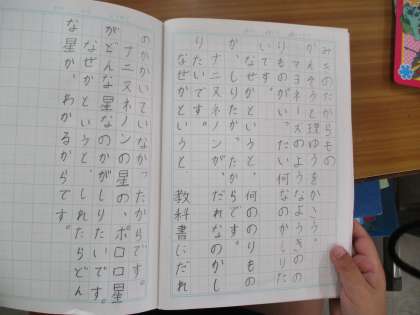 みさのたからもの
かんそうと理ゆうをかこう。
マヨネーズのようなようきのの
りものが、いったい何なのかしりた
いです。
なぜかというと、何ののりもの
か、しりたい、からです。
ナニヌネノンが、だれなのかし
りたいです。
なぜかというと 教科書にだれ
のかかいていなかったからです。
ナニヌネノンの星の、ポロロ星
がどんな星なのかがしりたいです。
なぜかというと、しれたらどん
な星か、わかるからです。